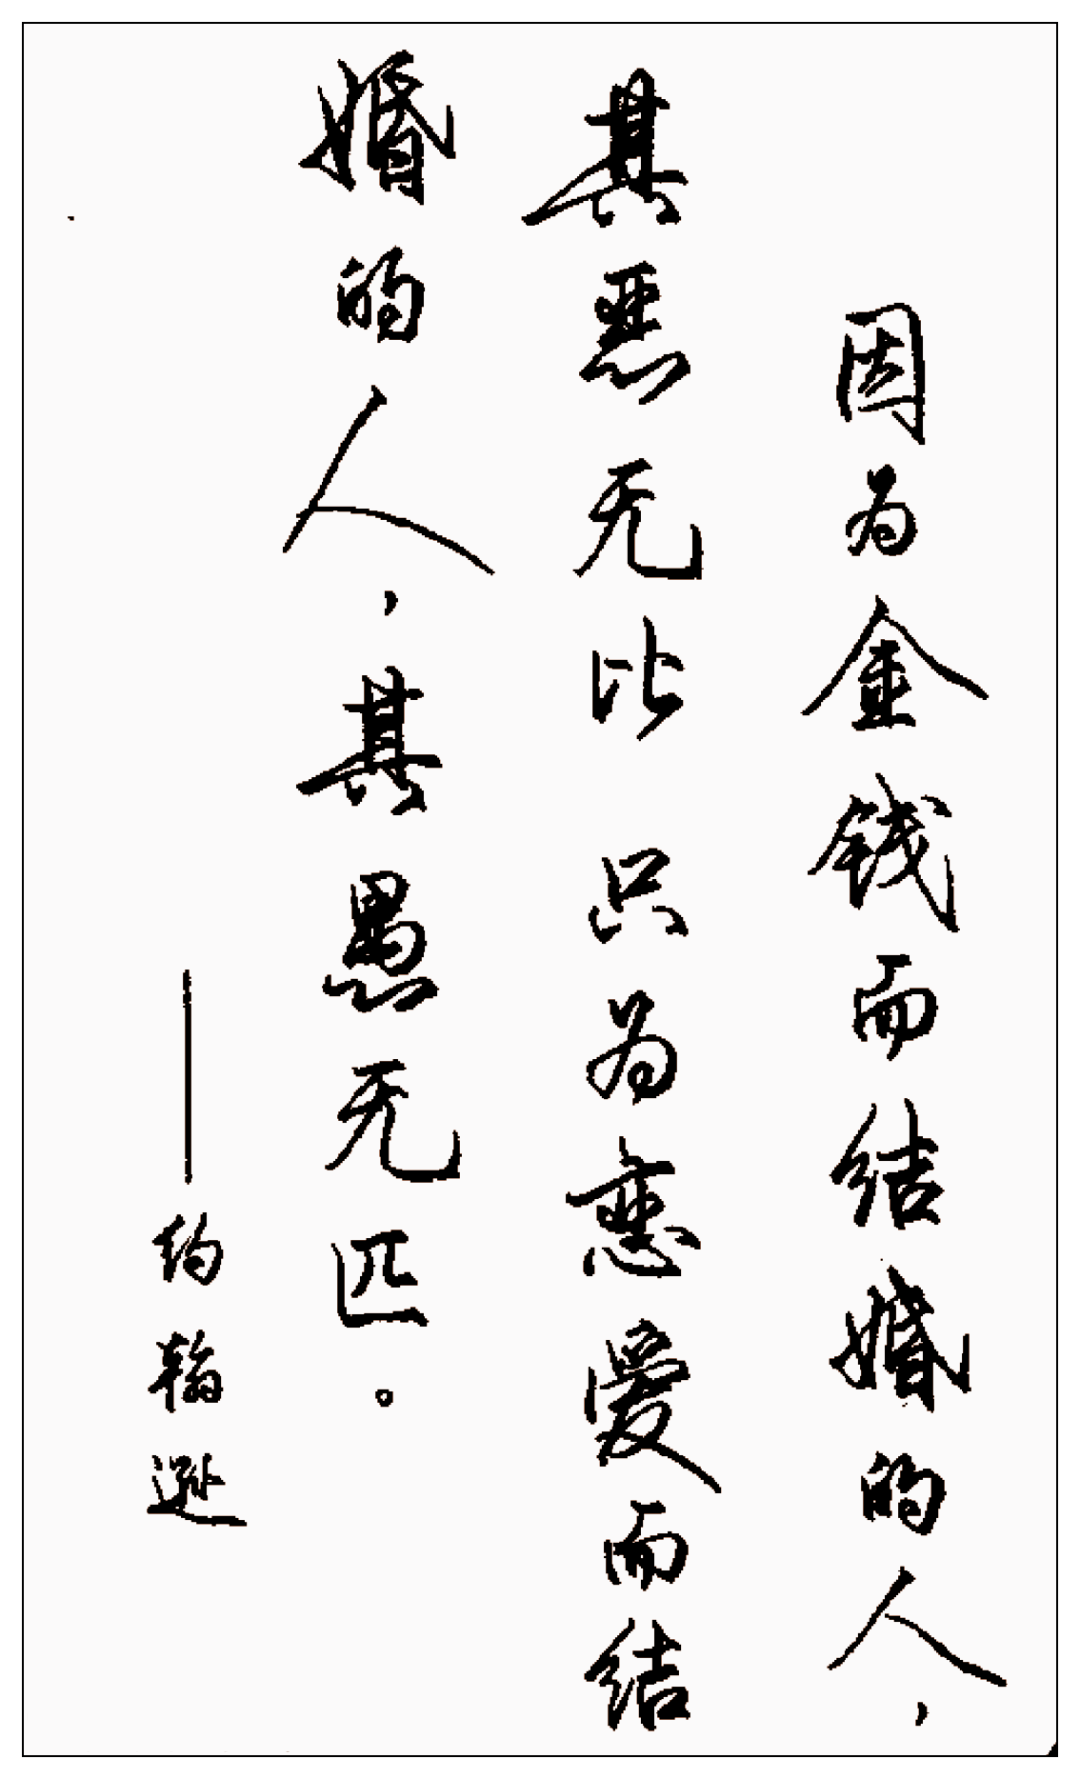 因为金钱而结婚的人，
其恶无比 只为恋爱而结
婚的人，其愚无匹。
——约翰逊